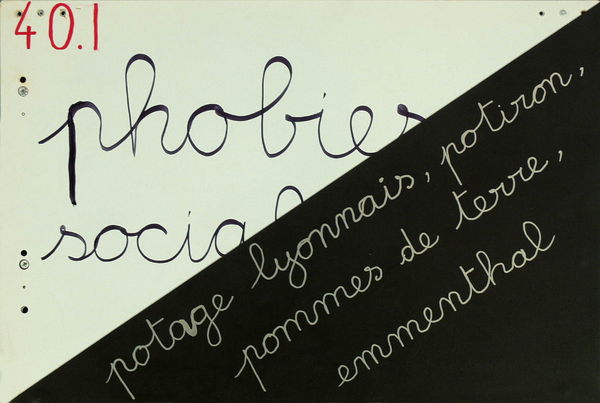 40.1
phobies
social
potage lyonnais, potiron,
pommes de terre,
emmenthal